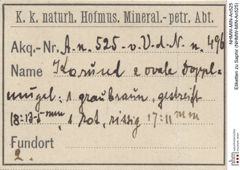 K. k. naturh. Hofmus. Mineral.-petr. Abt.
Akq.-Nr. A.n. 525 - v. V. d. N. n. 496
Name Korund 2 ovale Doppl-
mugel. 1 graubraun, gestreift
18:13·5 mm, 1 rot, rissig 17:11 mm
Fundort
2.
NHMW-MIN-An525
Etiketten zu Saphir (NHMW-MIN-An525)